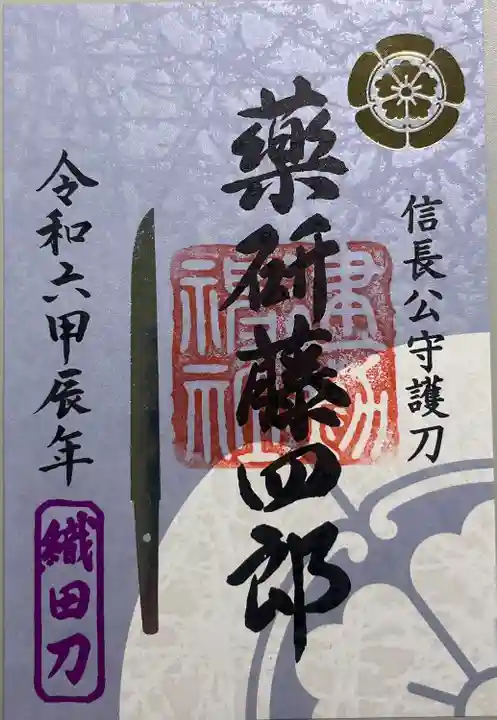 信長公守護刀
薬研藤四郎
建勲神社
令和六甲辰年
織田刀